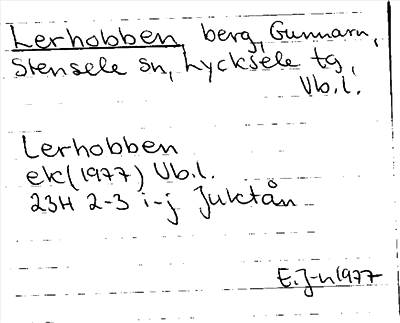 Lerhobben, berg, Gunnarn,
Stensele sn, Lycksele tg,
Vb.l.
Lerhobben
ek(1977) Vb.l.
23H 2-3 i-j Juktån
E.J-n 1977